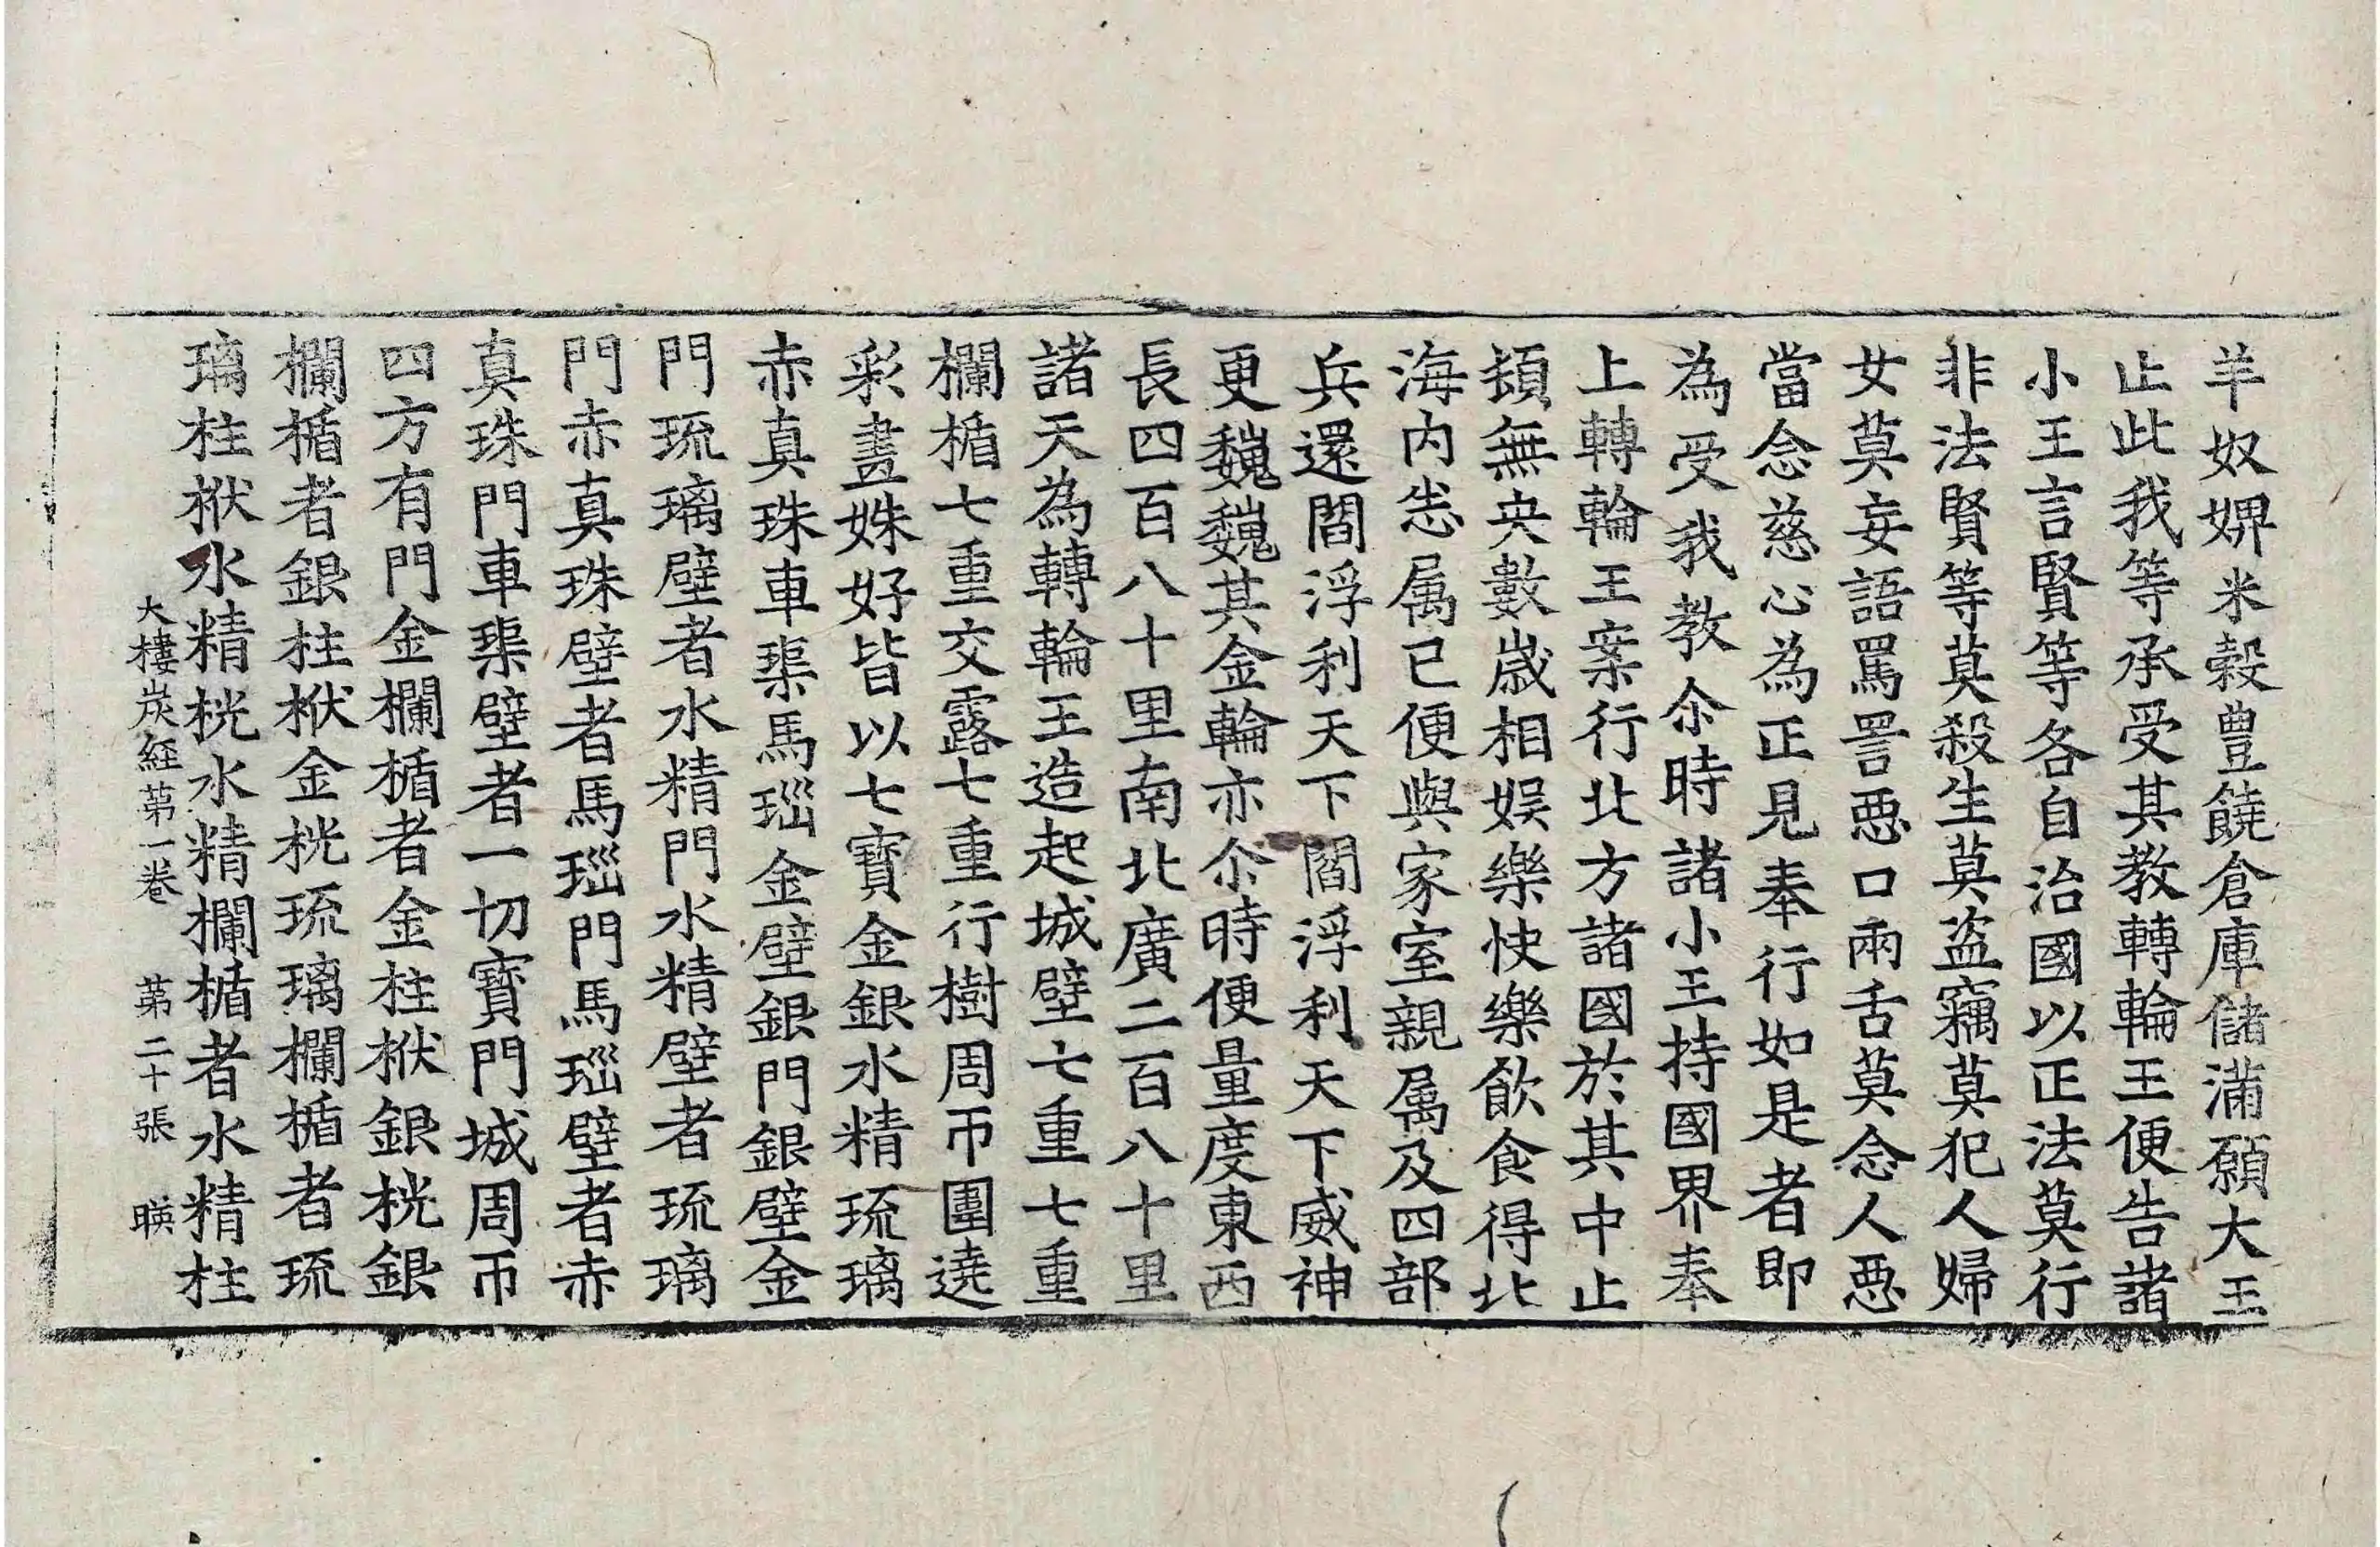 羊奴婢米穀豊饒倉庫儲滿願大王
止此我等承受其教轉輪王便告諸
小王言賢等各自治國以正法莫行
非法賢等莫殺生莫盗竊莫犯人婦
女莫妄語罵詈惡口兩舌莫念人惡
當念慈心為正見奉行如是者即
為受我教尒時諸小王持國界奉
上轉輪王案行北方諸國於其中止
頞無央數歲相娯樂快樂飲食得北
海内悉属已便與家室親属及四部
兵還閻浮利天下閻浮利天下威神
更巍巍其金輪亦尒時便量度東西
長四百八十里南北廣二百八十里
諸天為轉輪王造起城壁七重七重
欄楯七重交露七重行樹周帀圍遶
彩畫姝好皆以七寶金銀水精琉璃
赤真珠車𤦲馬瑙金壁銀門銀壁金
門琉璃壁者水精門水精壁者琉璃
門赤真珠壁者馬瑙門馬瑙壁者赤
真珠門車𤦲壁者一切寶門城周帀
四方有門金欄楯者金柱栿銀桄銀
欄楯者銀柱栿金桄琉璃欄楯者琉
璃柱栿水精桄水精欄楯者水精柱
大樓炭經第一卷 第二十張 暎